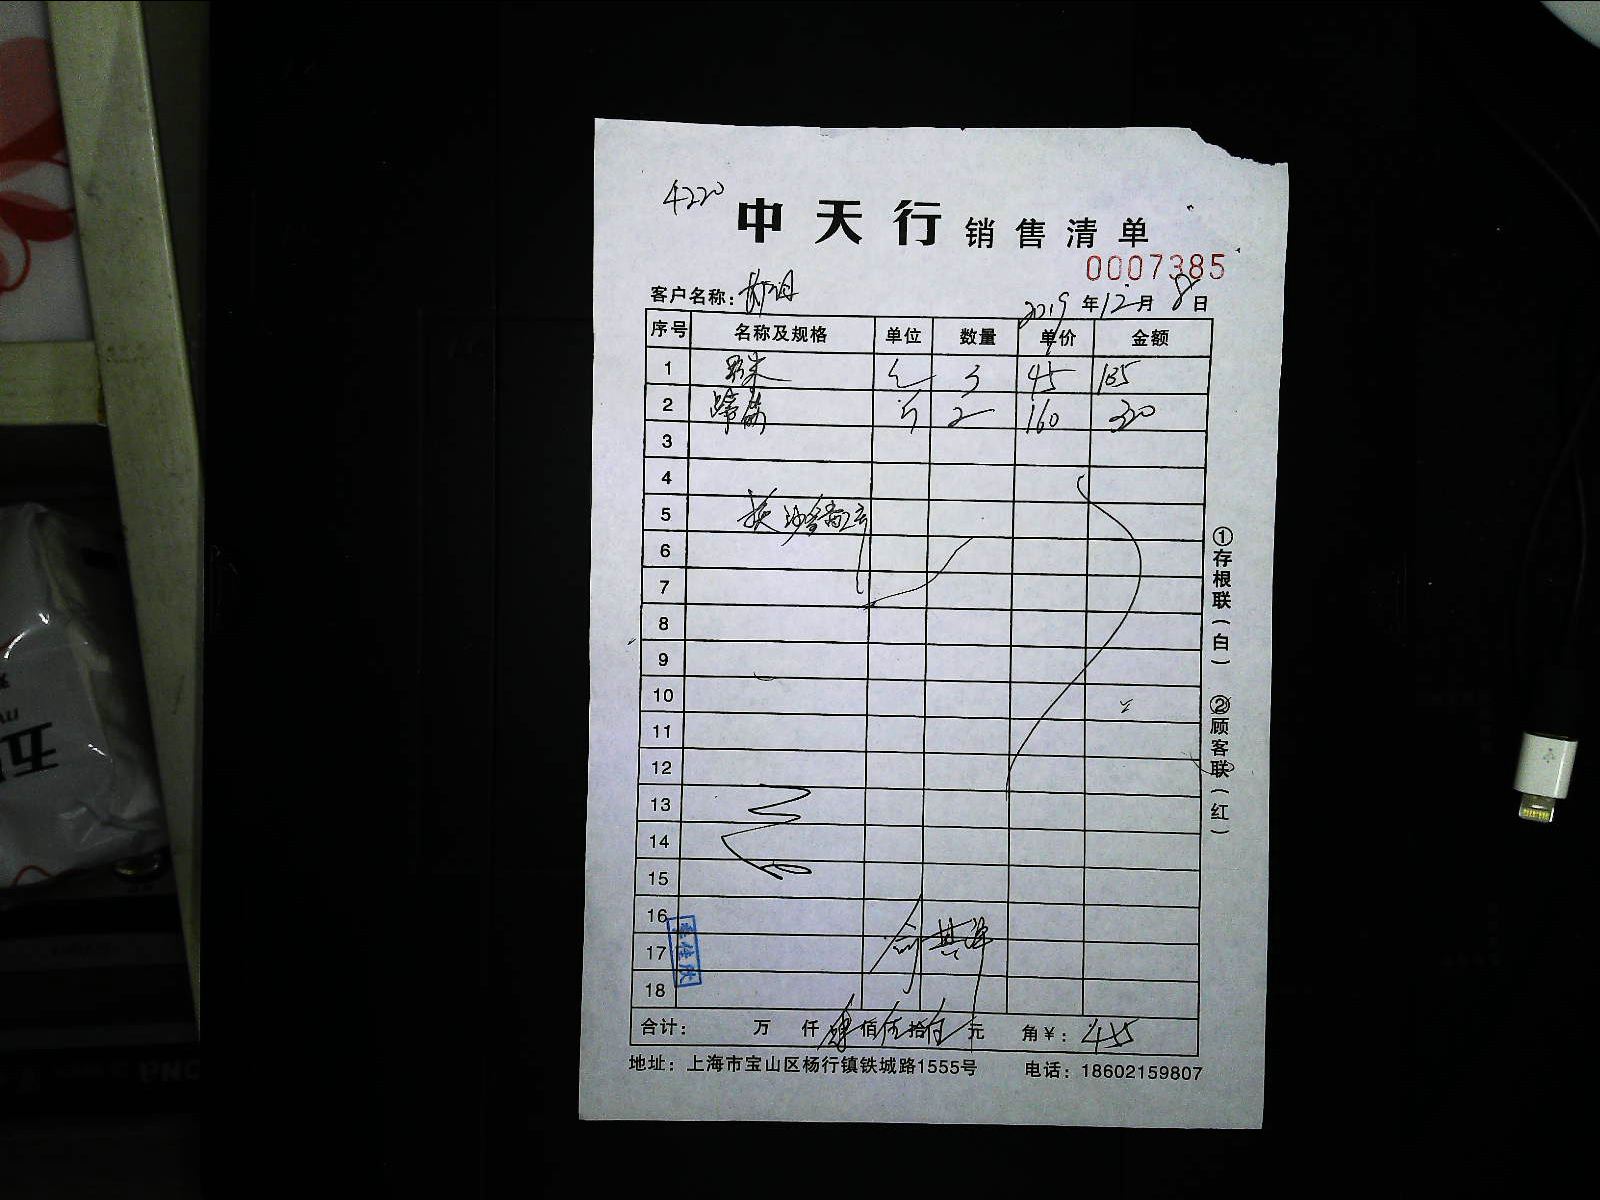 4220
中天行 销售清单
0007385
客户名称：
2019年12月8日
序号 名称及规格 单位 数量 单价 金额
1 3 45 135
2 2 160 320
3
4
5
6
7
8
9
10
11
12
13
14
15
16
17
18
合计： 万 仟 肆佰伍拾伍元 角￥：455
地址：上海市宝山区杨行镇铁城路1555号 电话：18602159807
①存根联（白） ②顾客联（红）